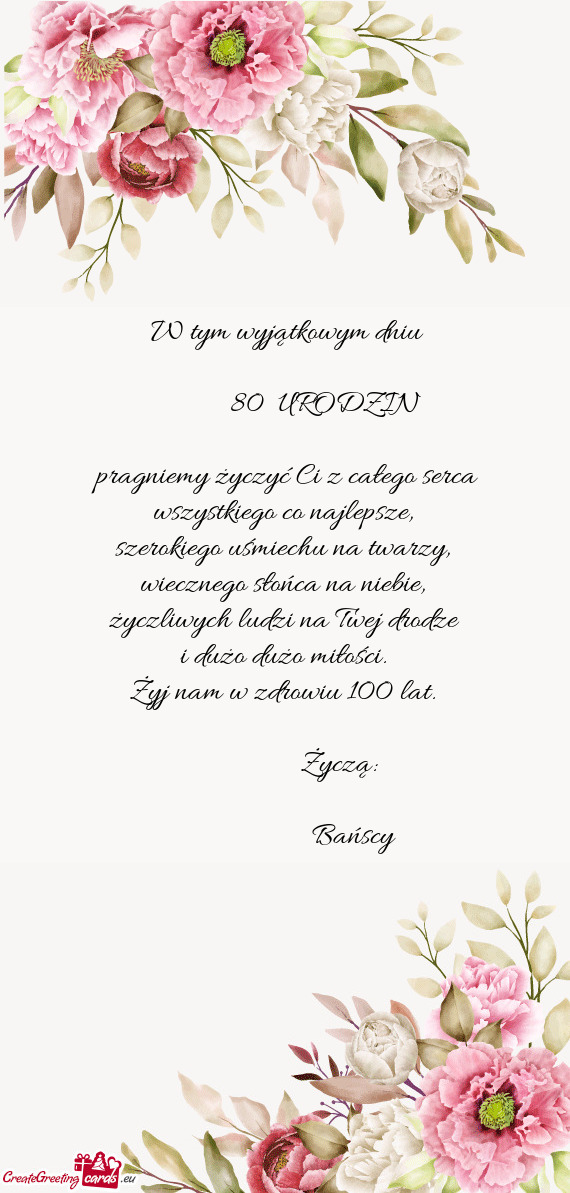 W tym wyjątkowym dniu
80 URODZIN
pragniemy życzyć Ci z całego serca
wszystkiego co najlepsze,
szerokiego uśmiechu na twarzy,
wiecznego słońca na niebie,
życzliwych ludzi na Twej drodze
i dużo dużo miłości.
Żyj nam w zdrowiu 100 lat.
Życzą:
Bańscy
CreateGreeting cards .eu